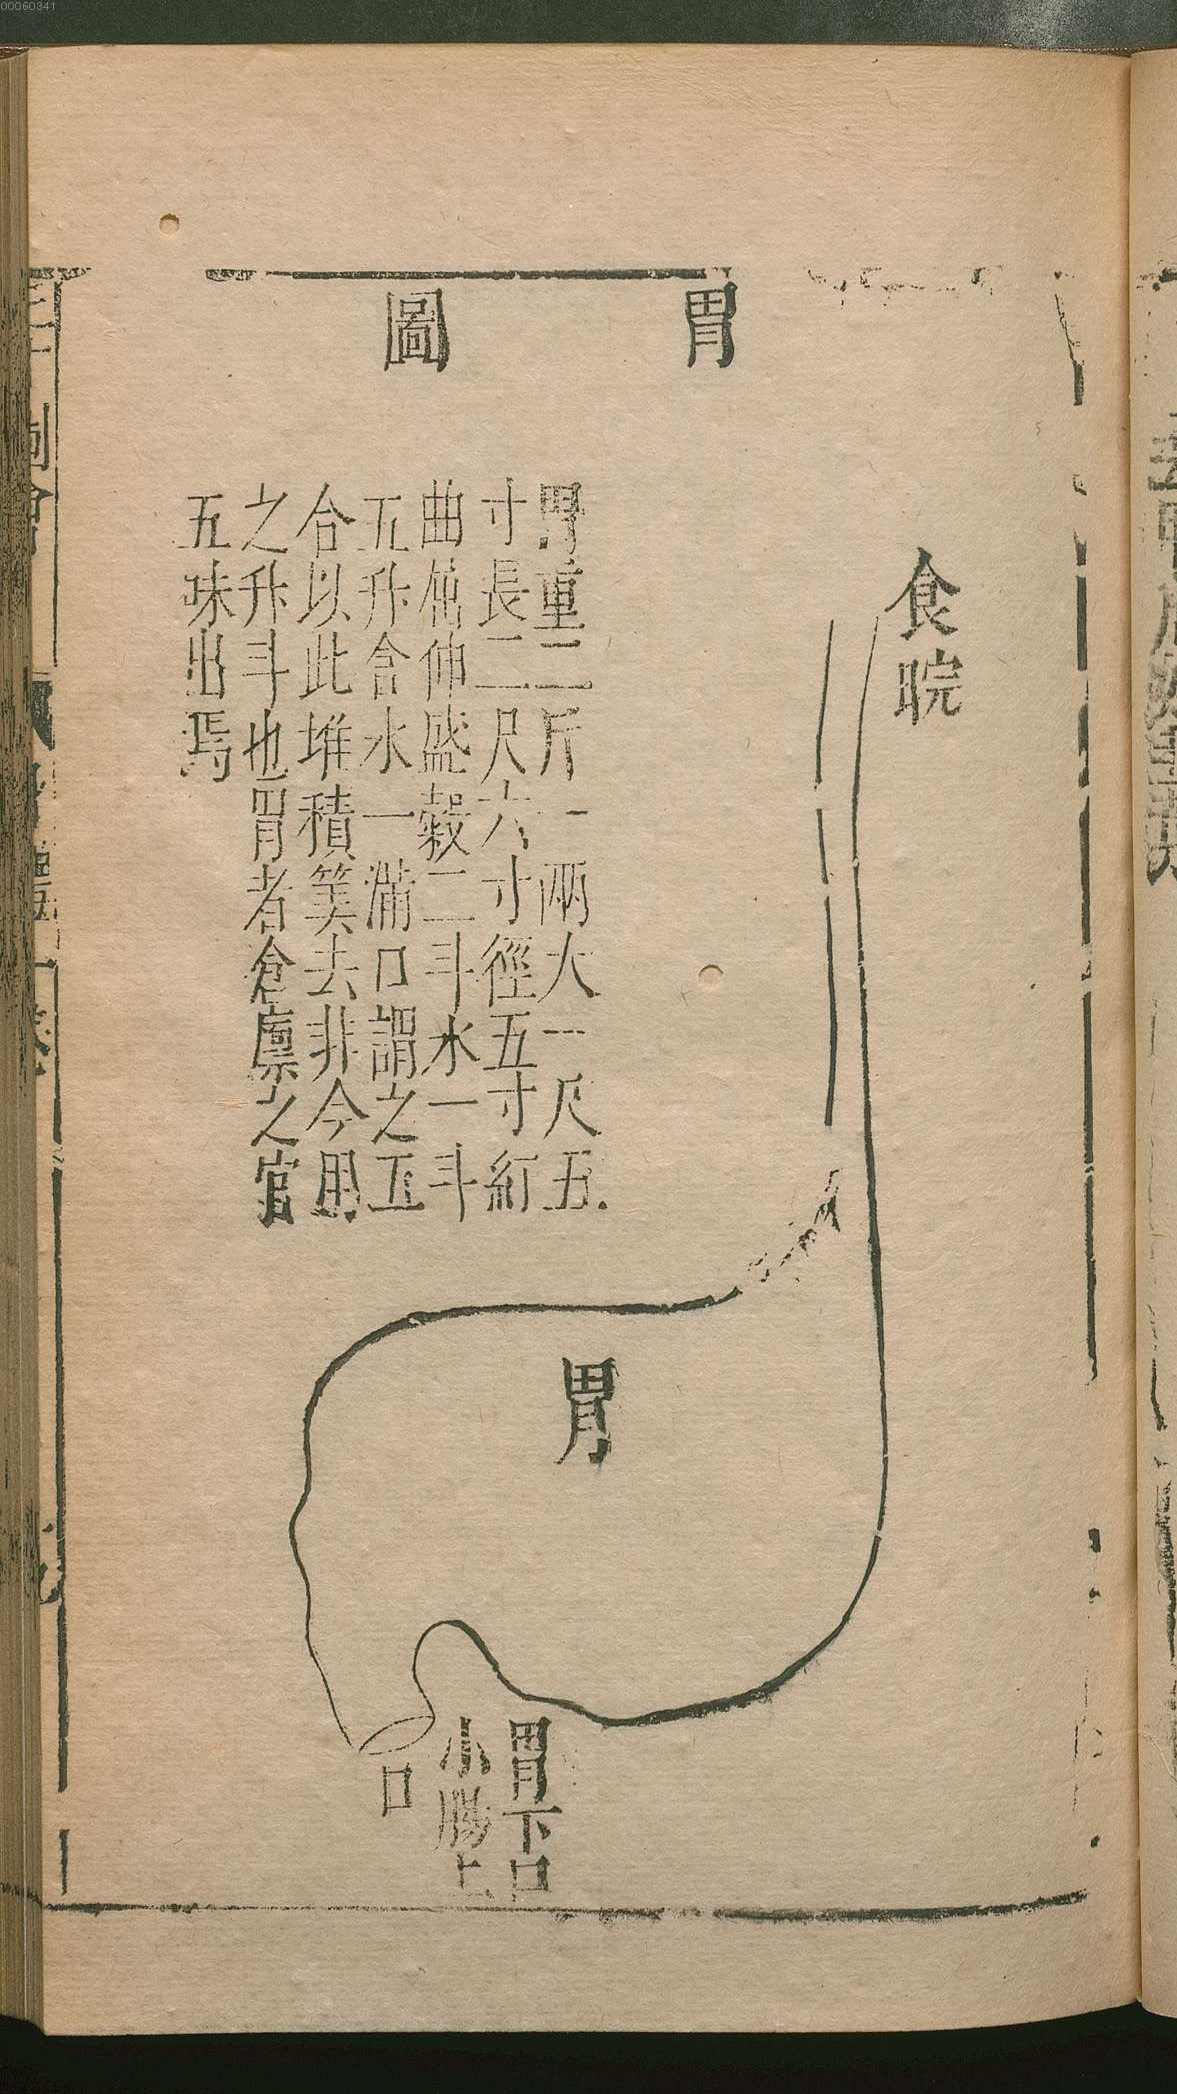 00060341
胃圖
食晥
胃重二斤一兩大一尺五
寸長二尺六寸徑五寸紆
曲屈伸盛穀二斗水一斗
五升合水一滿口謂之五
合以此堆積筭去非今用
之升斗也胃者倉廩之官
五味出焉
胃
胃下口
小腸上
口